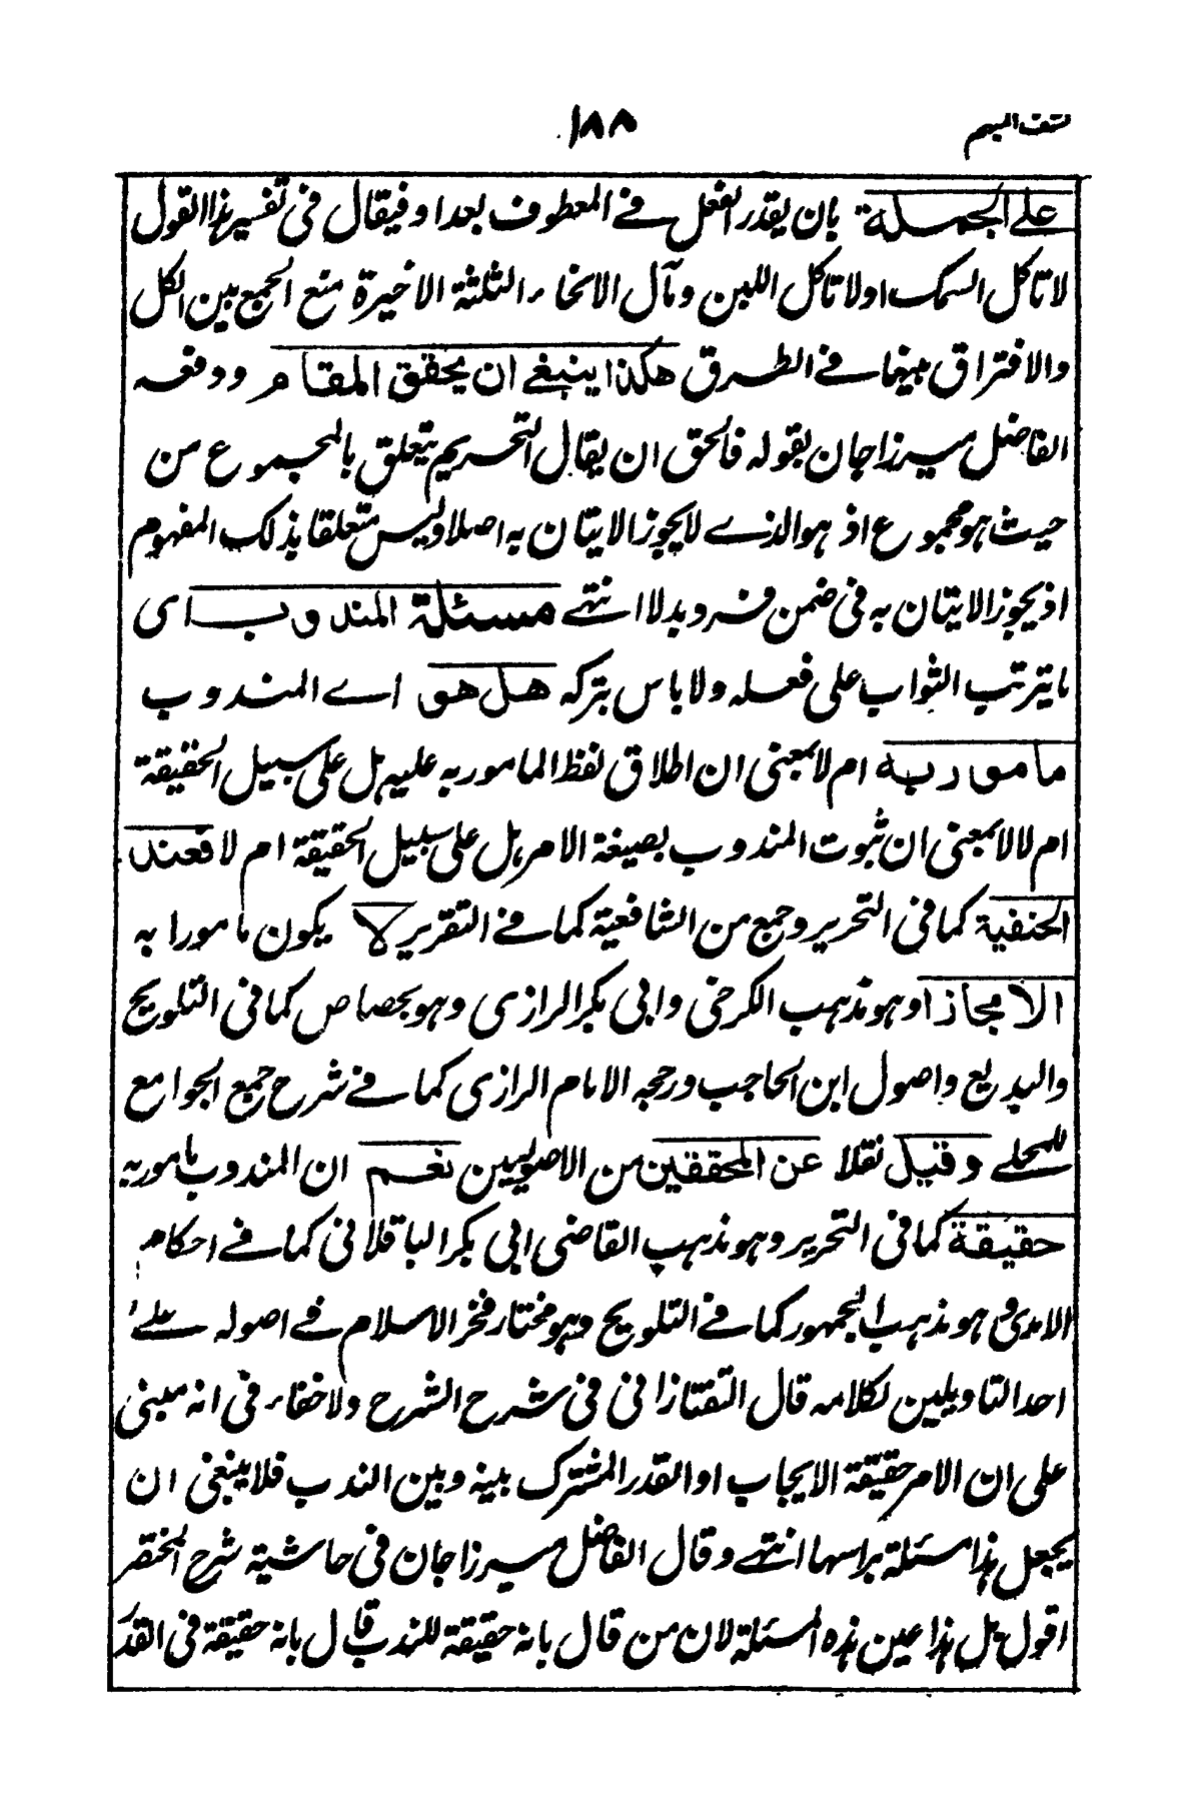 كشف المبهم
١٨٨
على الجملة بان يقدر الفعل في المعطوف بعد او فيقال في تفسير هذا القول
لا تاكل السمك او لا تاكل اللبن ومآل الانحاء الثلثة الاخيرة منع الجمع بين الكل
والافتراق بينهما في الطرق هكذا ينبغي ان يحقق المقام ودفعه
الفاضل ميرزاجان بقوله فالحق ان يقال التحريم يتعلق بالمجموع من
حيث هو مجموع اذ هو الذي لا يجوز الاتيان به اصلا وليس متعلقا بذلك المفهوم
اذ يجوز الاتيان به في ضمن فرد بدلا انتهى مسئلة المندوب اى
ما يترتب الثواب على فعله ولا باس بتركه هل هو اے المندوب
مامور به ام لا بمعنى ان اطلاق لفظ المامور به عليه هل على سبيل الحقيقة
ام لا لا بمعنى ان ثبوت المندوب بصيغة الامر هل على سبيل الحقيقة ام لا فعند
الحنفية كما فى التحرير وجمع من الشافعية كما فے التقرير لا يكون مامورا به
الا مجازا وهو مذهب الكرخى وابى بكر الرازى وهو بجصاص كما فى التلويح
والبديع واصول ابن الحاجب ورجحه الامام الرازى كما فے شرح جمع الجوامع
للمحلے وقيل نقلا عن المحققين من الاصوليين نعم ان المندوب مامور به
حقيقة كما فى التحرير وهو مذهب القاضى ابى بكر الباقلانى كما فے احكام
الامدى وهو مذهب الجمهور كما فے التلويح وهو مختار فخر الاسلام فے اصوله علے
احد التاويلين لكلامه قال التفتازانى فى شرح الشرح ولا خفاء فى انه مبنى
على ان الامر حقيقة الايجاب او القدر المشترك بينه وبين الندب فلا ينبغى ان
يجعل هذا مسئلة براسها انتهے وقال الفاضل ميرزاجان فى حاشية شرح المختصر
اقول بل هذا عين هذه المسئلة لان من قال بانه حقيقة للندب قال بانه حقيقة فى القدر